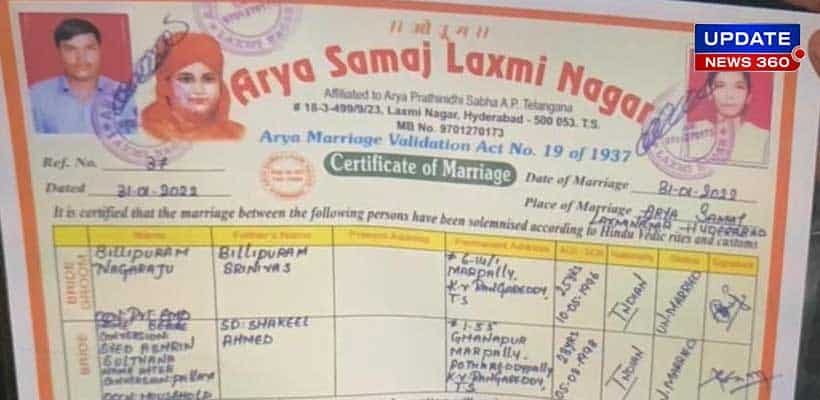 UPDATE
NEWS 360
।। ओ३म् ।।
Arya Samaj Laxmi Nagar
Affiliated to Arya Prathinidhi Sabha A.P. Telangana
# 18-3-499/9/23, Laxmi Nagar, Hyderabad - 500 053. T.S.
MB No. 9701270173
Arya Marriage Validation Act No. 19 of 1937
Ref. No. 37
Certificate of Marriage
Date of Marriage 31-01-2022
Dated 31-01-2022
Place of Marriage ARYA SAMAJ
LAXMINAGAR HYDERABAD
It is certified that the marriage between the following persons have been solemnised according to Hindu Vedic rites and customs
Name Father's Name Present Address Permanent Address Nationality Status Signature
BRIDE GROOM
BILLIPURAM
NAGARAJU
BILLIPURAM
SRINIVAS
# 6-14/1
MARPALLY.
K.V RANGAREDDY
T.S
25YRS
10-05-1996
INDIAN
UN-MARRIED
BRIDE
SYED ASHRIN
SULTHANA
SD: SHAKEEL
AHMED
# 1-55
GHANAPUR
MARPALLY.
K.V RANGAREDDY,
T.S
23YRS
05-08-1998
INDIAN